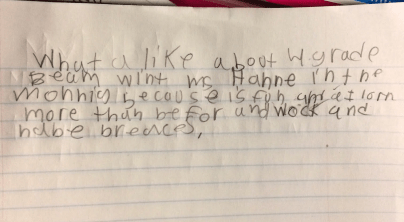 What a like about 4 grade
Beam wint ms Hahne in the
mohhig because is fun and at lorn
more than be for and work and
habe breaces,